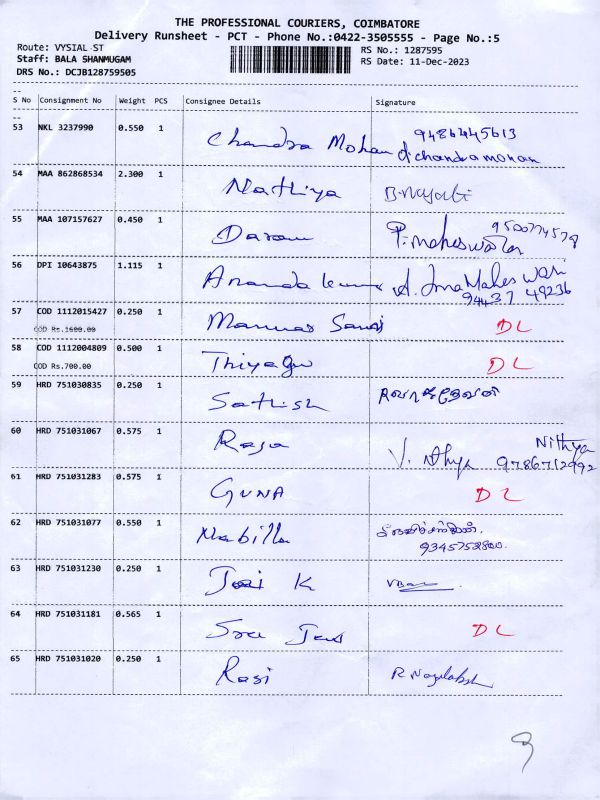 THE PROFESSIONAL COURIERS, COIMBATORE
Delivery Runsheet - PCT - Phone No.:0422-3505555 - Page No.:5
Route: VYSIAL ST
RS No.: 1287595
Staff: BALA SHANMUGAM
RS Date: 11-Dec-2023
DRS No.: DCJB128759505
S No Consignment No Weight PCS Consignee Details Signature
53 NKL 3237990 0.550 1 Chandra Mohan 9486445613
chandramohan
54 MAA 862868534 2.300 1 Nathiya
55 MAA 107157627 0.450 1 P. maheswaran 9500774579
56 DPI 10643875 1.115 1 Ananda kumar A. Uma Maheswari
94437 49236
57 COD 1112015427 0.250 1 DL
COD Rs.1600.00
58 COD 1112004809 0.500 1 Thiyagu DL
COD Rs.700.00
59 HRD 751030835 0.250 1 Sathish
60 HRD 751031067 0.575 1 Raja V. Nthya Nithya
9786712992
61 HRD 751031283 0.575 1 GUNA DL
62 HRD 751031077 0.550 1 Nabilla
9345752800.
63 HRD 751031230 0.250 1 Jai K
64 HRD 751031181 0.565 1 Sree DL
65 HRD 751031020 0.250 1 Rasi